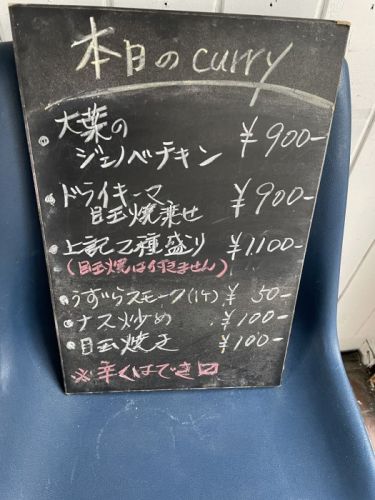 本日のcurry
・大葉の
ジェノベチキン ¥900-
・ドライキーマ
目玉焼乗せ ¥900-
・上記2種盛り ¥1,100-
(目玉焼は付きません)
・うずらスモーク(1ケ) ¥50-
・ナス炒め ¥100-
・目玉焼き ¥100-
※辛くはでき〼